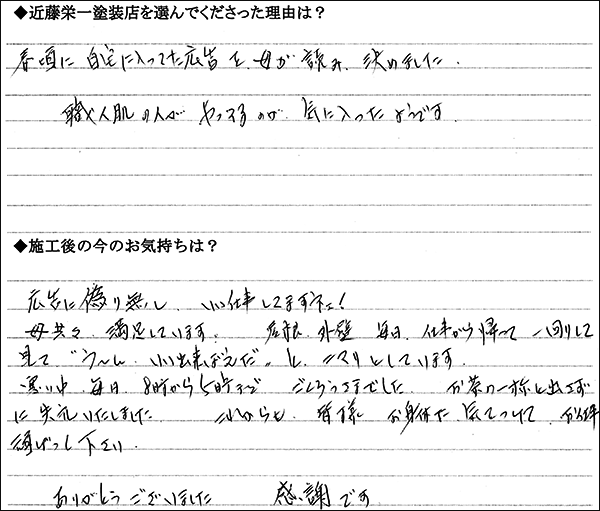 ◆近藤栄一塗装店を選んでくださった理由は？
春頃に 自宅に入ってた広告を、母が読み、決めました。
職人肌の人が やってるのが 気に入ったようです。
◆施工後の今のお気持ちは？
広告に偽り無し、いい仕事してますネェ!
母共々、満足しています。 屋根、外壁 毎日、仕事から帰って 一回りして
見て “う〜ん、いい出来ばえだ” と、ニマリとしています。
寒い中、毎日、8時から5時まで ごくろうさまでした。 お茶の一杯と出さず
に 失礼いたしました これからも、皆様 お身体に 気をつけて、お仕事
頑ばって 下さい。
ありがとうございました 感謝です